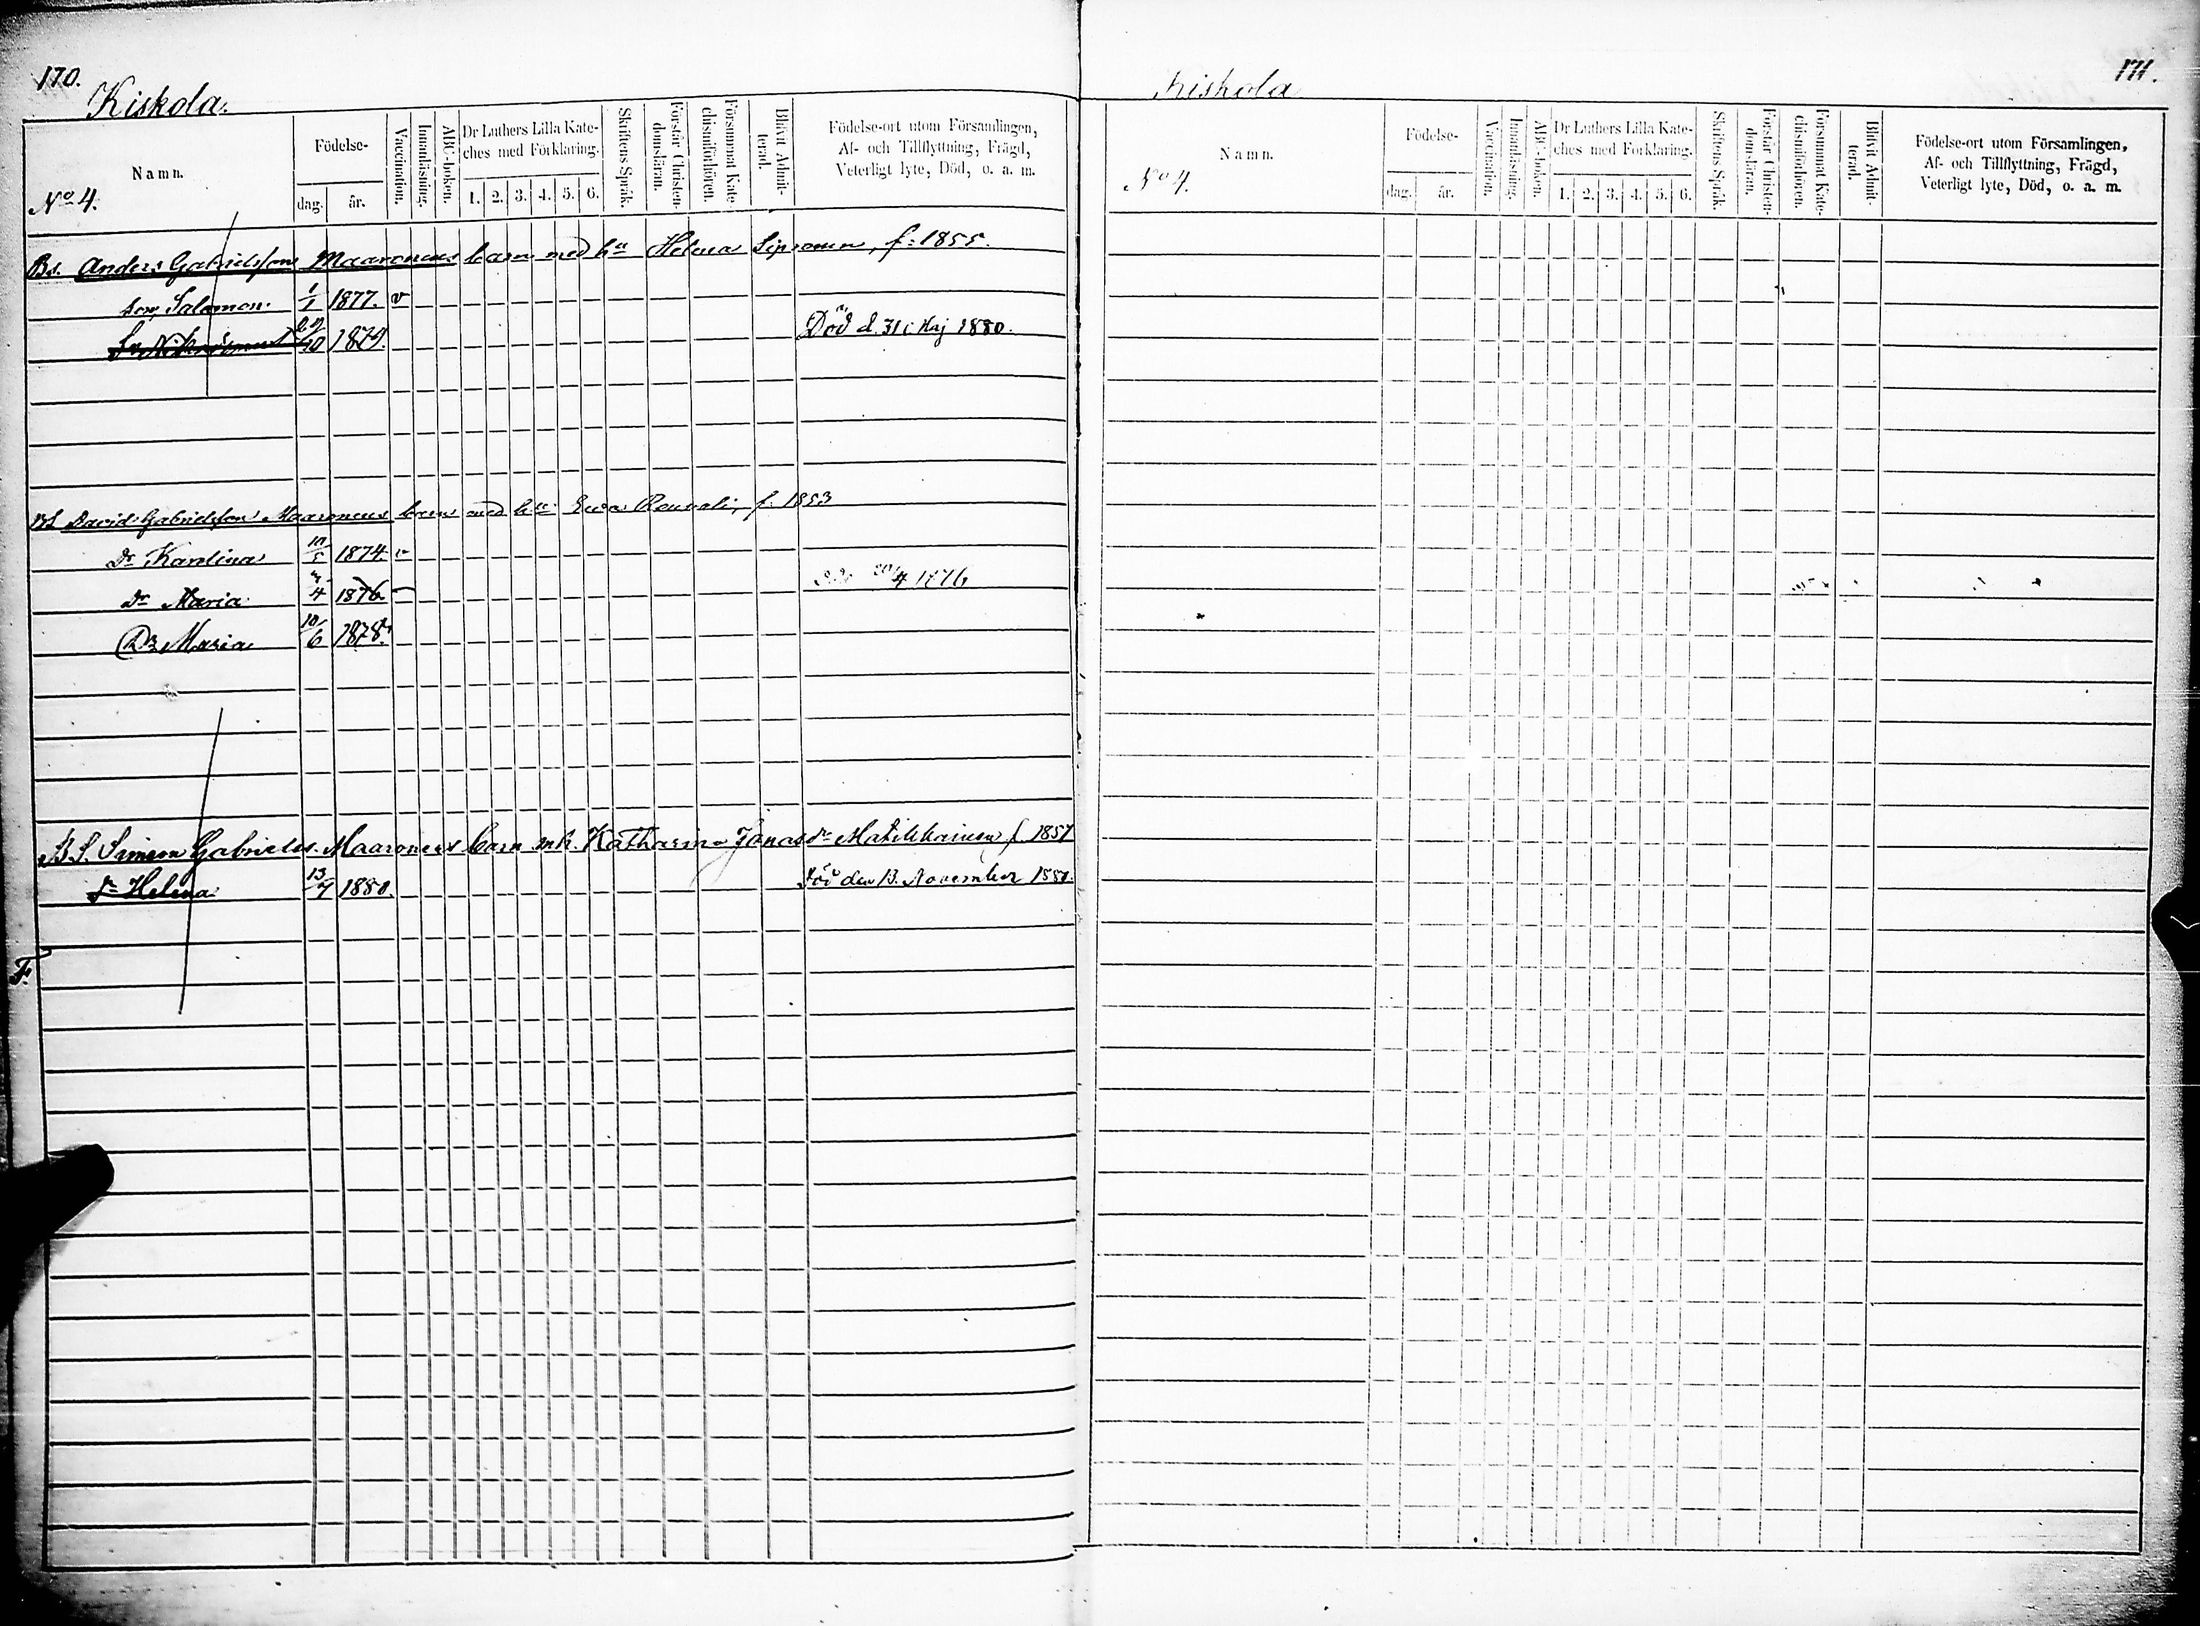 170.
Kiskola.
Namn.
No 4.
Födelse-
dag. år.
Vaccination.
Innanläsning.
ABC-boken.
Dr Luthers Lilla Kate-
ches med Förklaring.
1. 2. 3. 4. 5. 6.
Skriftens Språk.
Förstår Christen-
domsläran.
Försummat Kate-
chismiförhören.
Blifvit Admit-
terad.
Födelse-ort utom Församlingen,
Af- och Tillflyttning, Frägd,
Veterligt lyte, Död, o. a. m.
Bs. Anders Gabrielsson Maaronens barn med hu Helena Siponen, f: 1855.
son Salamon. 1/1 1877. v
1879. Död d. 31 Maj 1880.
BS David Gabrielsson Maaronens barn med hu Ewa Rouvali, f. 1853
Dr Karolina 10/5 1874. v
Dr Maria 4 1876 20/4 1876
Dr Maria 10/6 1878.
B. S. Simeon Gabriels. Maaronens barn m.h. Katharina Jonasdr Matikkainen f. 1857
Dr Helena 13/7 1880. Död den 13. November 1880.
F.
Kiskola
171.
Namn.
No 4.
Födelse-
dag. år.
Vaccination.
Innanläsning.
ABC-boken.
Dr Luthers Lilla Kate-
ches med Förklaring.
1. 2. 3. 4. 5. 6.
Skriftens Språk.
Förstår Christen-
domsläran.
Försummat Kate-
chismiförhören.
Blifvit Admit-
terad.
Födelse-ort utom Församlingen,
Af- och Tillflyttning, Frägd,
Veterligt lyte, Död, o. a. m.